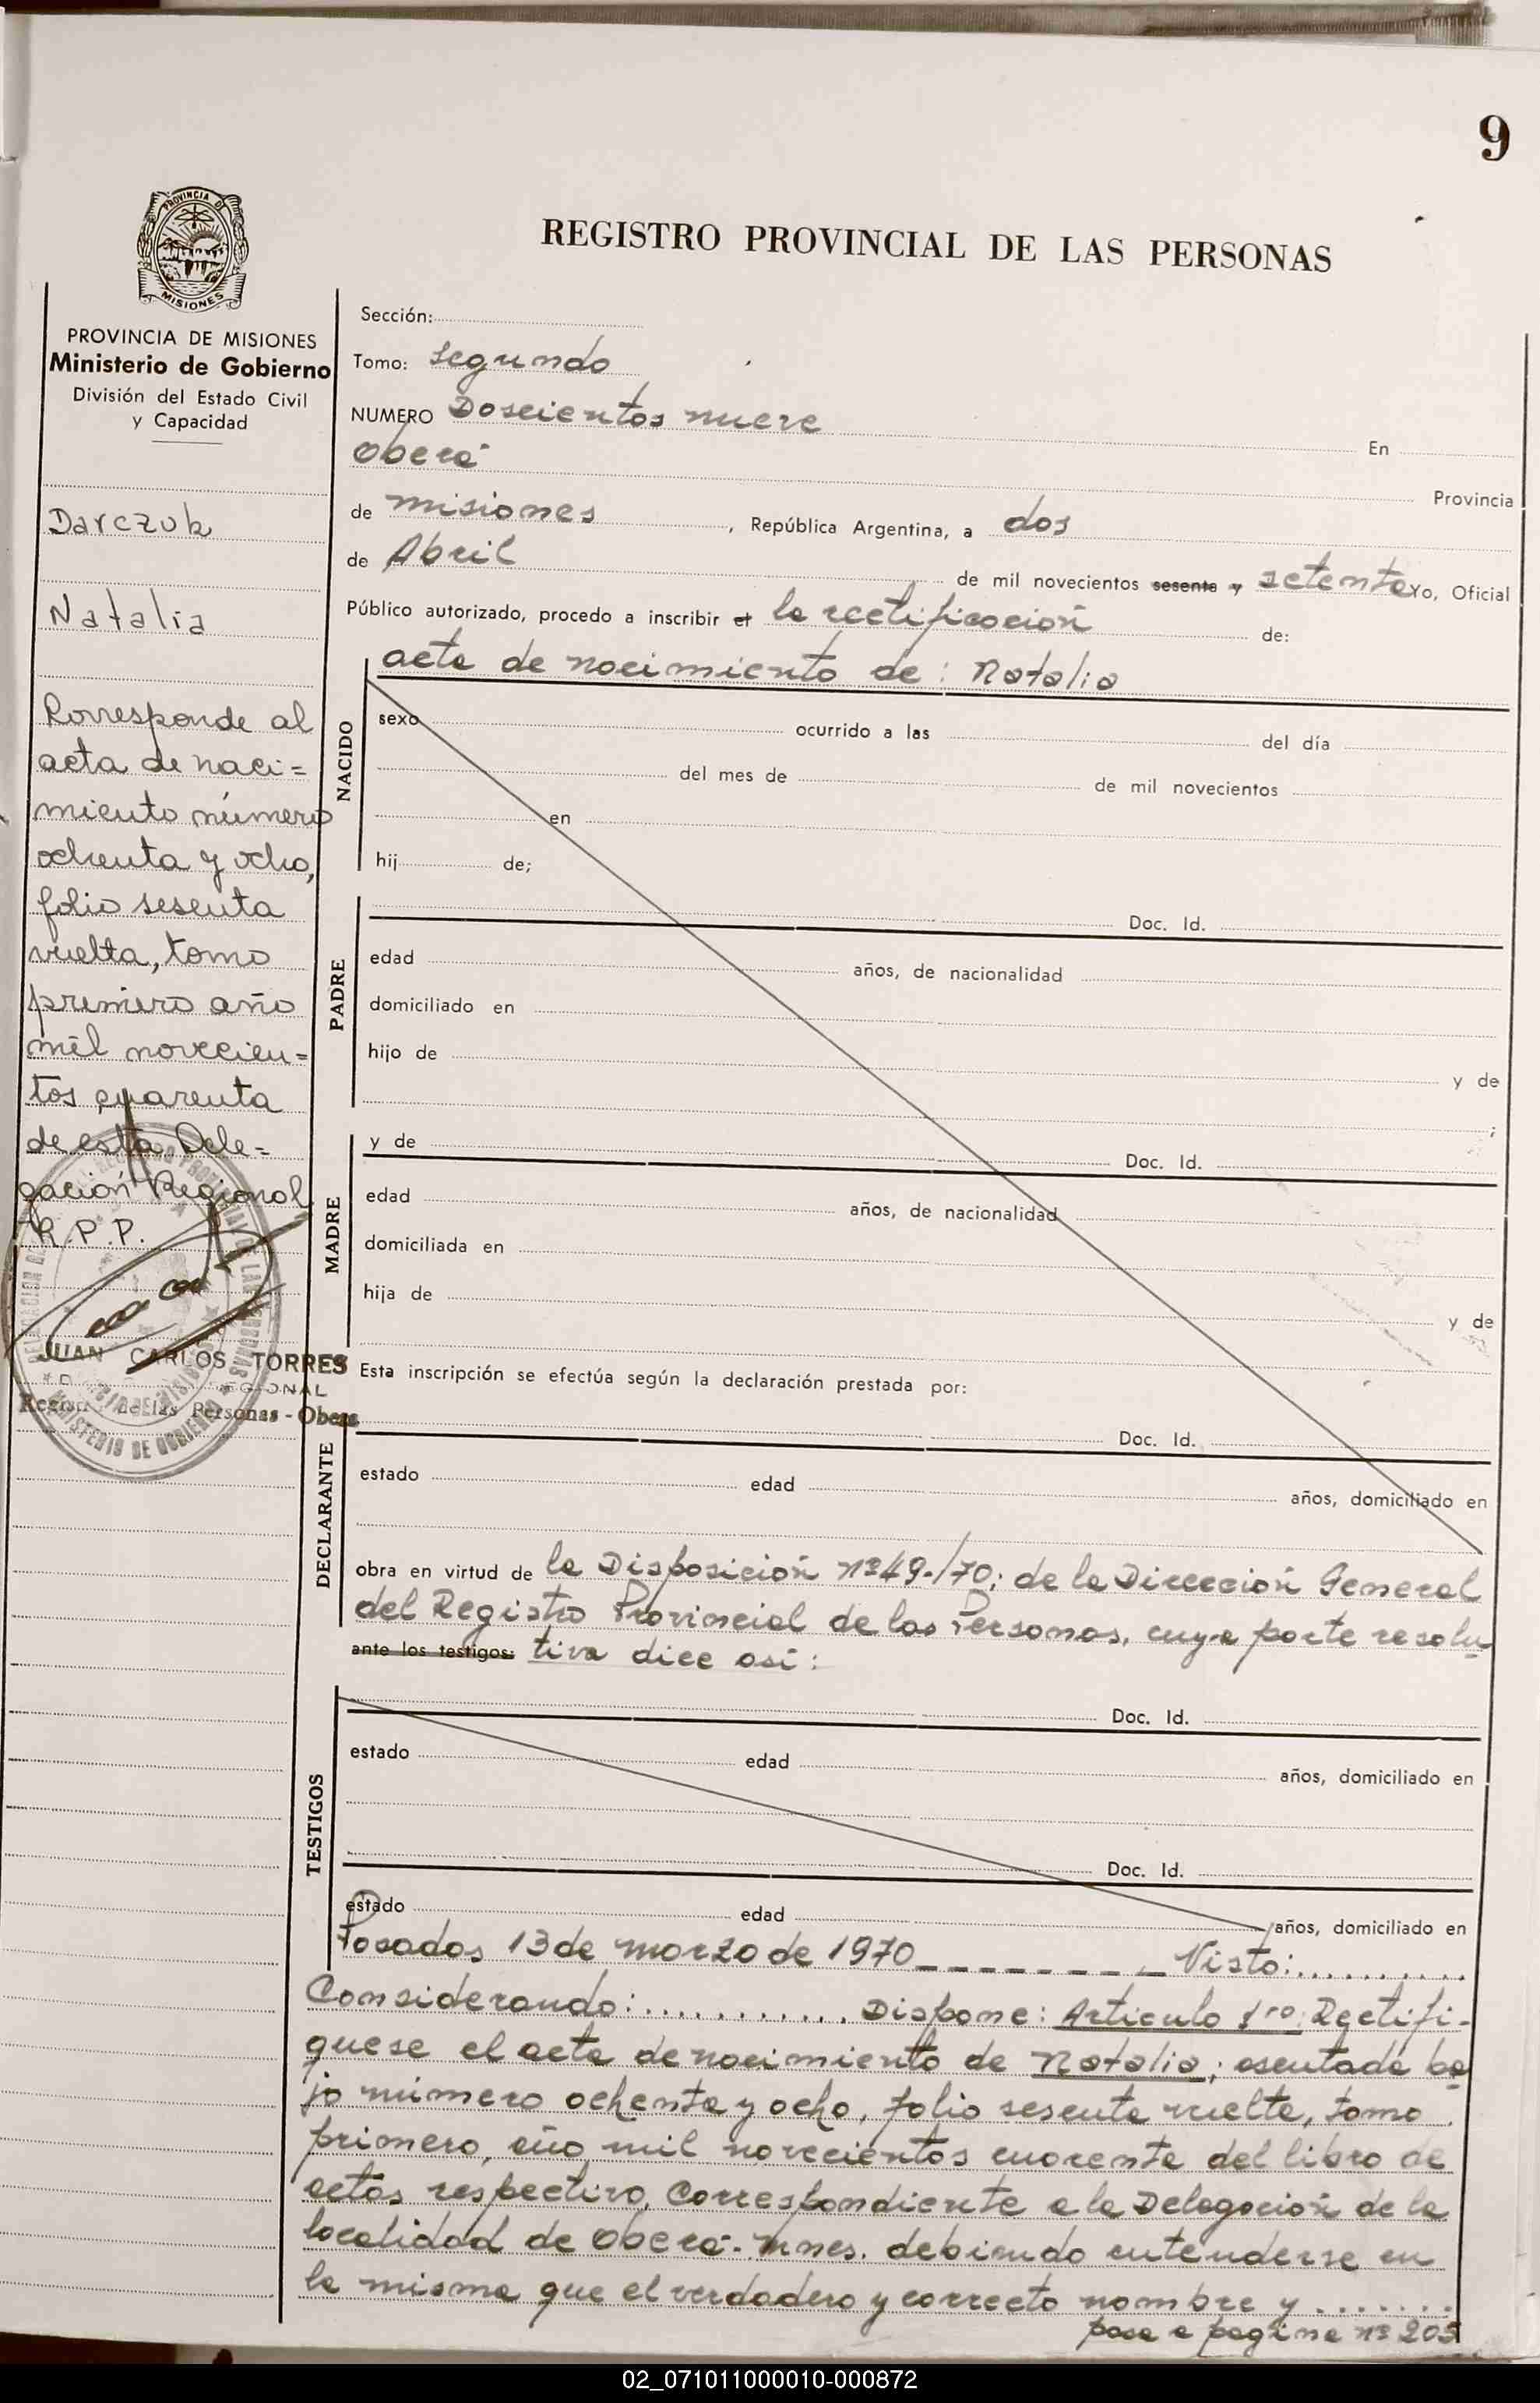 9
PROVINCIA DE
MISIONES
REGISTRO PROVINCIAL DE LAS PERSONAS
PROVINCIA DE MISIONES
Ministerio de Gobierno
División del Estado Civil
y Capacidad
Darczuk
Natalia
Corresponde al
acta de naci=
miento número
ochenta y ocho,
folio sesenta
vuelta, tomo
primero año
mil novecien=
tos cuarenta
de esta Dele=
gación Regional
R.P.P.
JUAN CARLOS TORRES
REGIONAL
de las Personas - Oberá
Sección:
Tomo: Segundo
NUMERO Doscientos nueve En
Oberá Provincia
de Misiones, República Argentina, a dos
de Abril de mil novecientos sesenta y setenta yo, Oficial
Público autorizado, procedo a inscribir el la rectificación de:
acta de nacimiento de: Natalia
NACIDO
sexo ocurrido a las del día
del mes de de mil novecientos
en
hij de;
PADRE
Doc. Id.
edad años, de nacionalidad
domiciliado en
hijo de y de
;
MADRE
y de Doc. Id.
edad años, de nacionalidad
domiciliada en
hija de y de
Esta inscripción se efectúa según la declaración prestada por:
DECLARANTE
Doc. Id.
estado edad años, domiciliado en
obra en virtud de la Disposición nº 49-/70; de la Dirección General
del Registro Provincial de las Personas, cuya parte resolu
ante los testigos: tiva dice así:
TESTIGOS
Doc. Id.
estado edad años, domiciliado en
Doc. Id.
estado edad años, domiciliado en
Posadas 13 de marzo de 1970 _ _ _ _ _ _ _ _ Visto:..........
Considerando:........... Dispone: Artículo 1ro: Rectifi-
quese el acta de nacimiento de Natalia; asentada ba
jo número ochenta y ocho, folio sesenta vuelta, tomo
primero, año mil novecientos cuarenta del libro de
actas respectivo, correspondiente a la Delegación de la
localidad de Oberá - Mnes. debiendo entenderse en
la misma que el verdadero y correcto nombre y .......
pasa a pagina nº 205
02_071011000010-000872